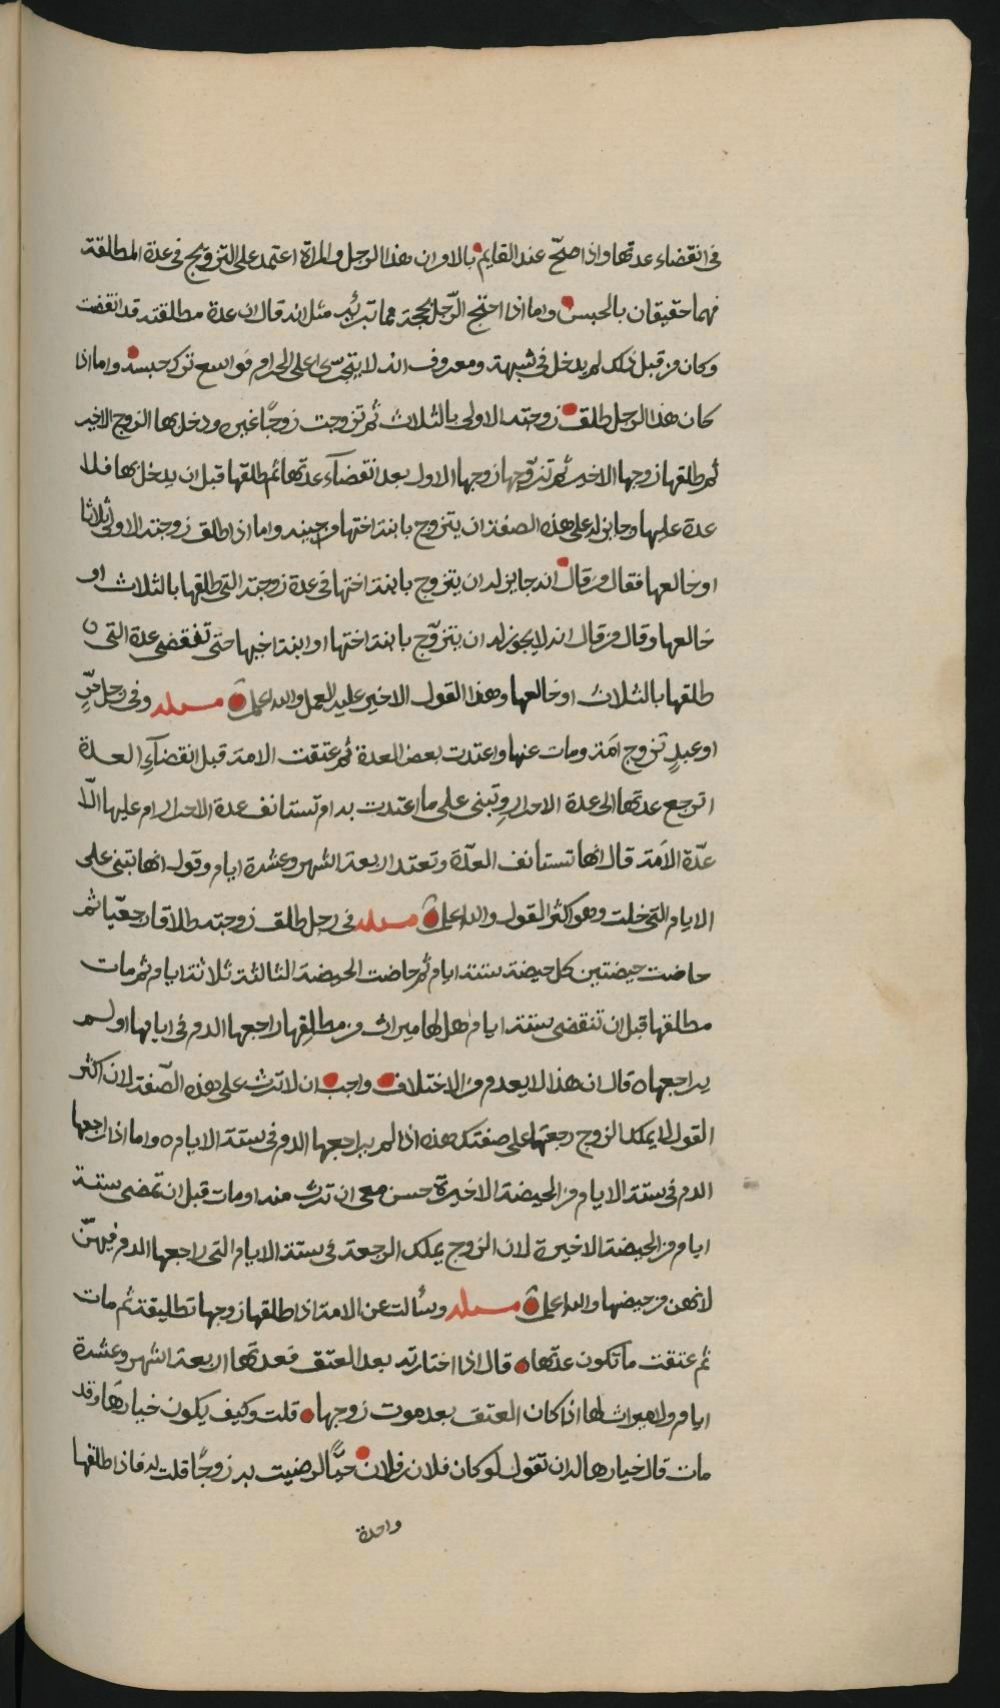 في انقضاء عدتها واذا صحّ عند القايم بالامر ان هذا الرجل والمراة اعتمد على التزويج في عدة المطلقة
فهما حقيقان بالحبس واما اذا احتج الرّجل بحجة مما تبريه مثل انه قال ان عدة مطلقته قد انقضت
وكان من قبل ذلك لم يدخل في شبهة ومعروف انه لا يتجرّى على الحرام فواسع ترك حبسه واما اذا
كان هذا الرجل طلق زوجته الاولى بالثلاث ثم تزوجت زوجًا غيره ودخل بها الزوج الاخير
ثم طلقها زوجها الاخير ثم تزوّجها زوجها الاول بعد انقضآء عدتها ثم طلقها قبل ان يدخل بها فلا
عدة عليها وجايز له على هذه الصفة ان يتزوج بابنة اختها من حينه واما اذا طلق زوجته الاولى ثلاثا
او خالعها فقال من قال انه جايز له ان يتزوج بابنة اختها في عدة زوجته التي طلقها بالثلاث او
خالعها وقال من قال انه لا يجوز له ان يتزوّج بابنة اختها او ابنة اخيها حتى تنقضي عدة التي
طلقها بالثلاث او خالعها وهذا القول الاخير عليه العمل والله اعلم مسئلة وفي رجل حرٍّ
او عبدٍ تزوج امَة ومات عنها واعتدت بعض العدة ثم عتقت الامة قبل انقضآءِ العدة
اترجع عدتها الى عدة الاحرار وتبني على ما اعتدت به ام تستانف عدة الاحرار ام عليها الّا
عدّة الاَمَة قال انها تستانف العدّة وتعتد اربعة اشهر وعشرة ايام وقول انها تبني على
الايام التي خلت وهو اكثر القول والله اعلم مسئلة في رجل طلق زوجته طلاقا رجعيّا ثم
حاضت حيضتين كل حيضة ستة ايام ثم حاضت الحيضة الثالثة ثلاثة ايام ثم مات
مطلقها قبل ان تنقضي ستة ايام هل لها ميراث من مطلقها راجعها الدم في ايامها او لم
يراجعها قال ان هذا لا يعدم من الاختلاف واجب ان لا ترث على هذه الصّفة لان اكثر
القول لا يملك الزوج رجعتها على صفتك هذه اذا لم يراجعها الدم في ستة الايام واما اذا راجعها
الدم في ستة الايام من الحيضة الاخيرة حسن معي ان ترث منه او مات قبل ان تمضي ستة
ايام من الحيضة الاخيرة لان الزوج يملك الرجعة في ستة الايام التي راجعها الدم فيهنّ
لانهن من حيضها والله اعلم مسئلة وسألت عن الامة اذا طلقها زوجها تطليقة ثم مات
ثم عتقت ما تكون عدتها قال اذا اختارته بعد العتق فعدتها اربعة اشهر وعشرة
ايام ولا ميراث لها اذا كان العتق بعد موت زوجها قلت وكيف يكون خيارها وقد
مات قال خيارها له ان تقول لو كان فلان بن فلان حيًّا لرضيت به زوجًا قلت له فاذا طلقها
واحدة